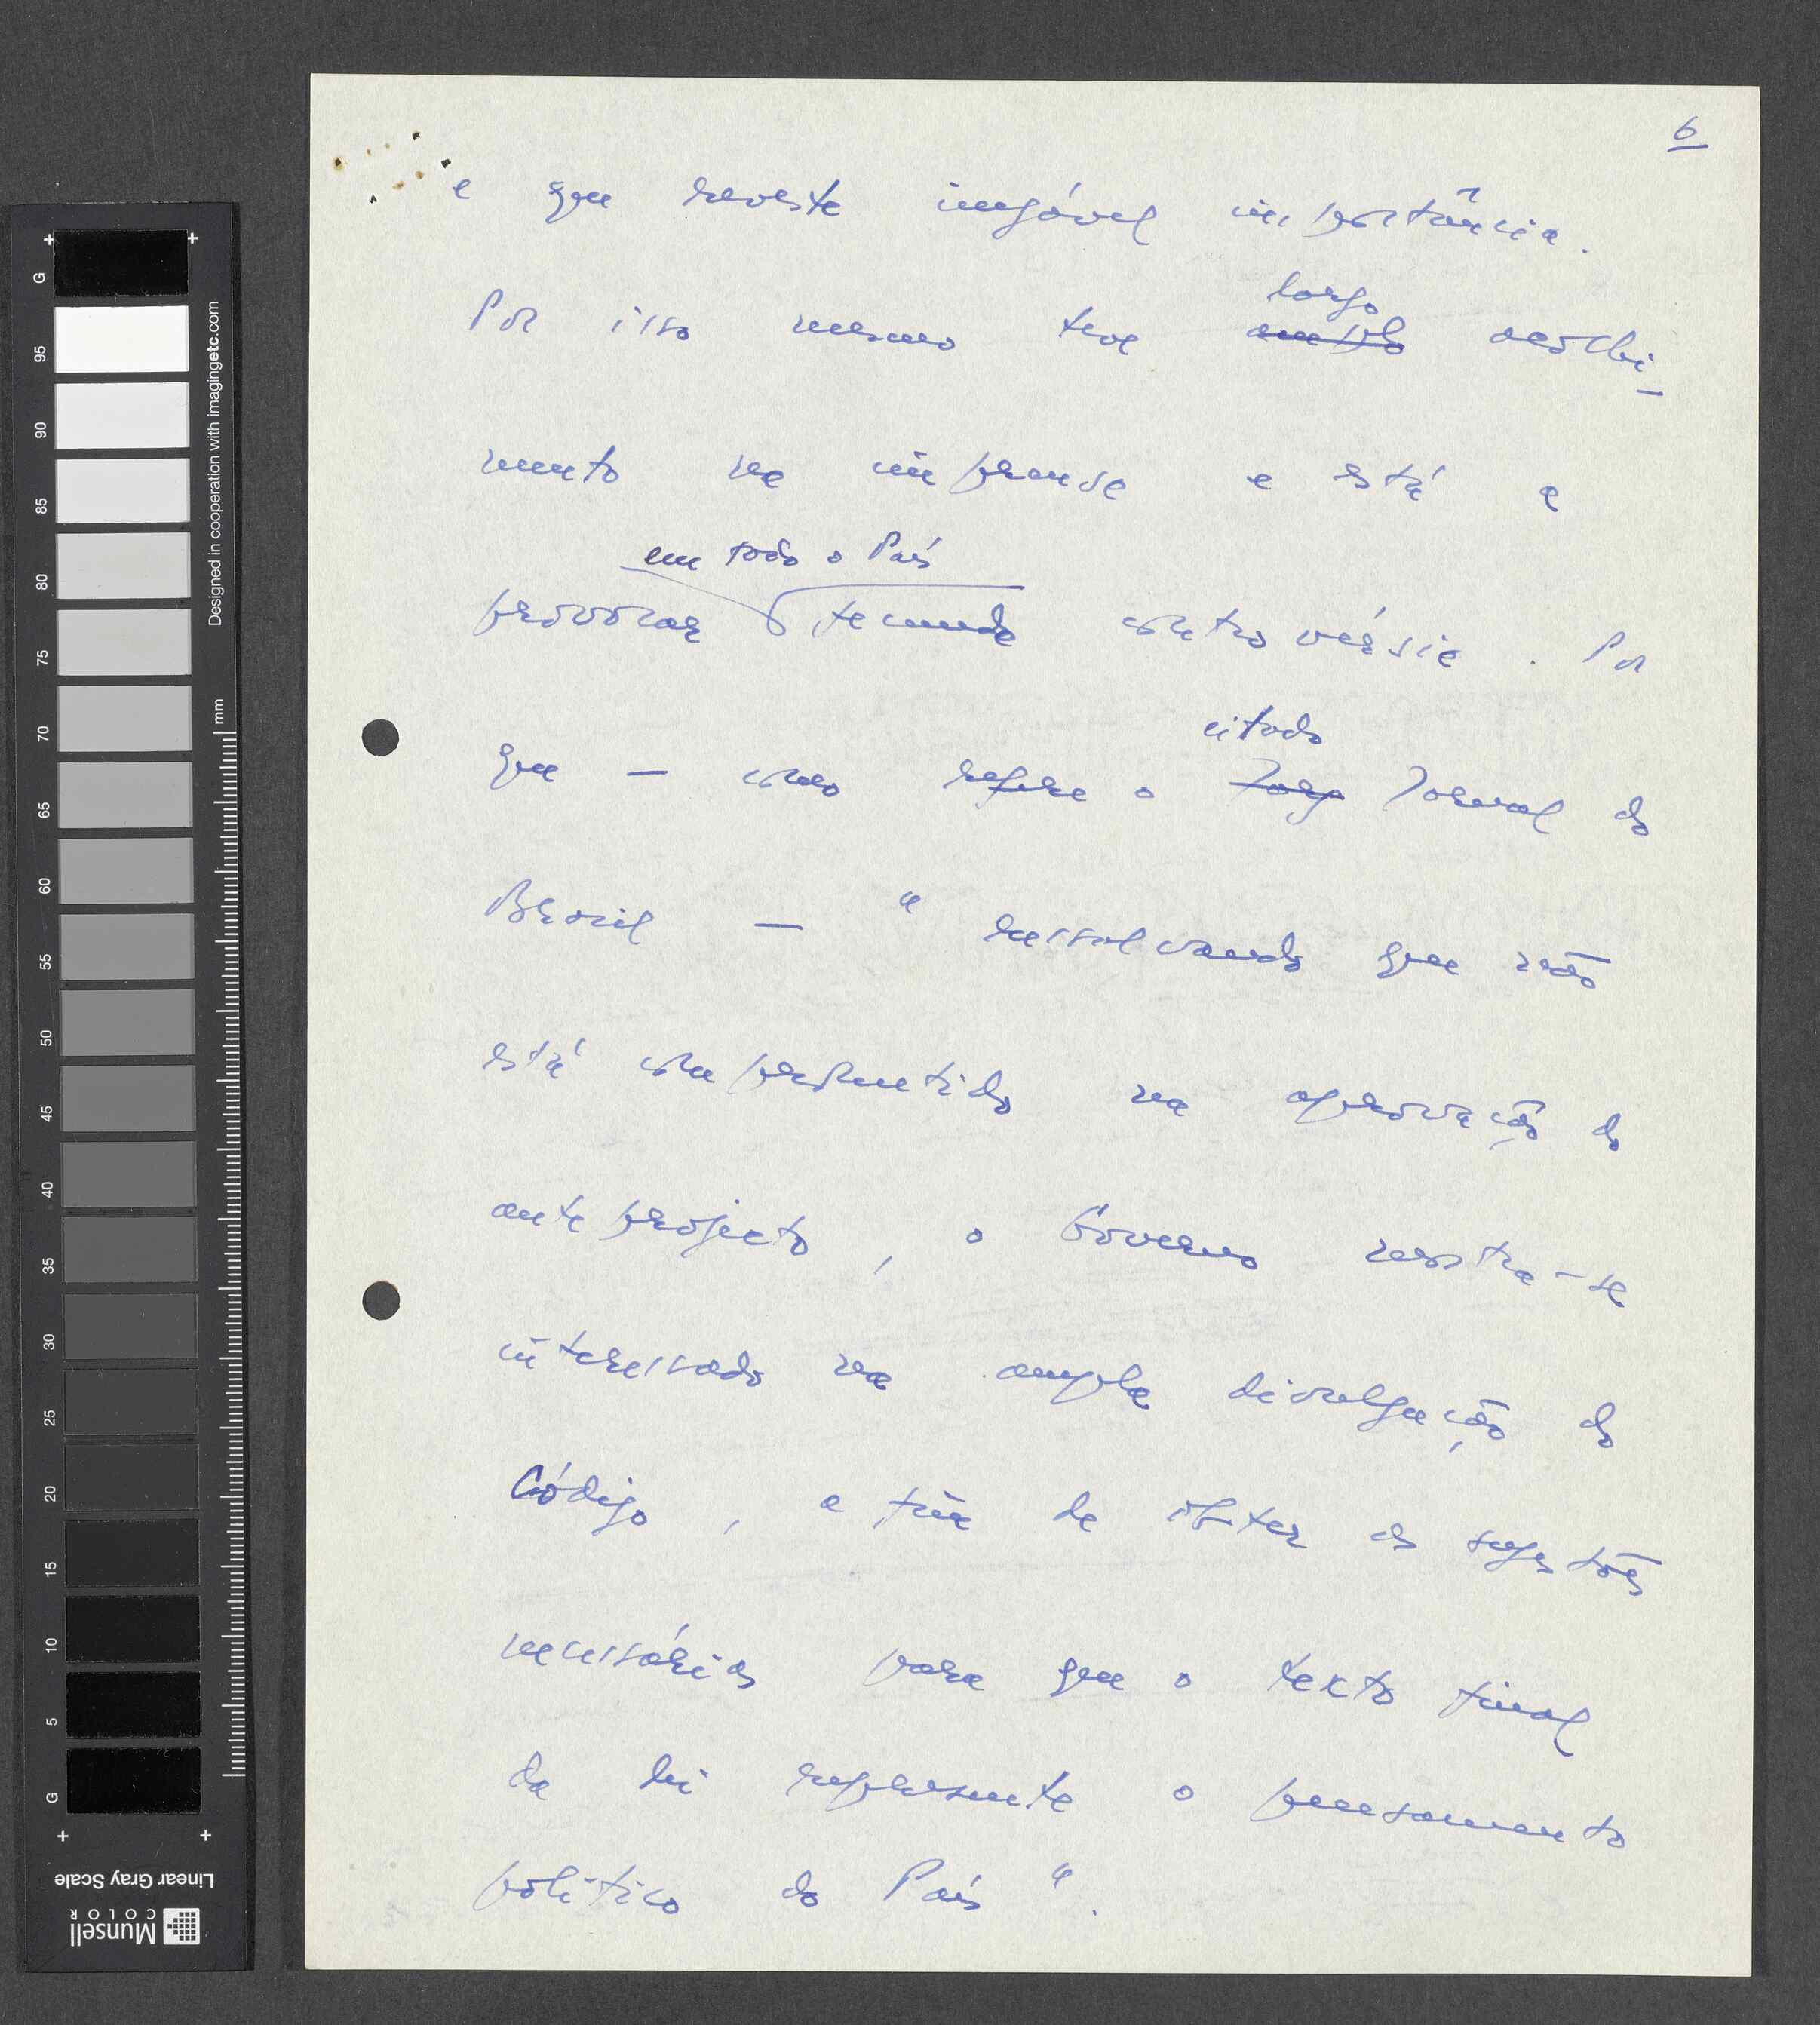 6
e que reveste ingável importância.
largo
Por isso mesmo teve amplo acolhi-
mento na imprensa e está a
em todo o País
provocar fecunda controvérsia. Por
citado
que — como refere o Jorg Jornal do
Brasil — " ressalvando que não
está comprometido na aprovação do
anteprojecto, o Governo mostra-se
interessado na ampla divulgação do
Código, a fim de obter as sugestões
necessárias para que o texto final
da lei represente o pensamento
político do País ".
G
95
90
85
80
75
70
65
60
55
50
45
40
35
30
25
20
15
10
5
G
mm
Designed in cooperation with imagingetc.com
Linear Gray Scale
Munsell
COLOR